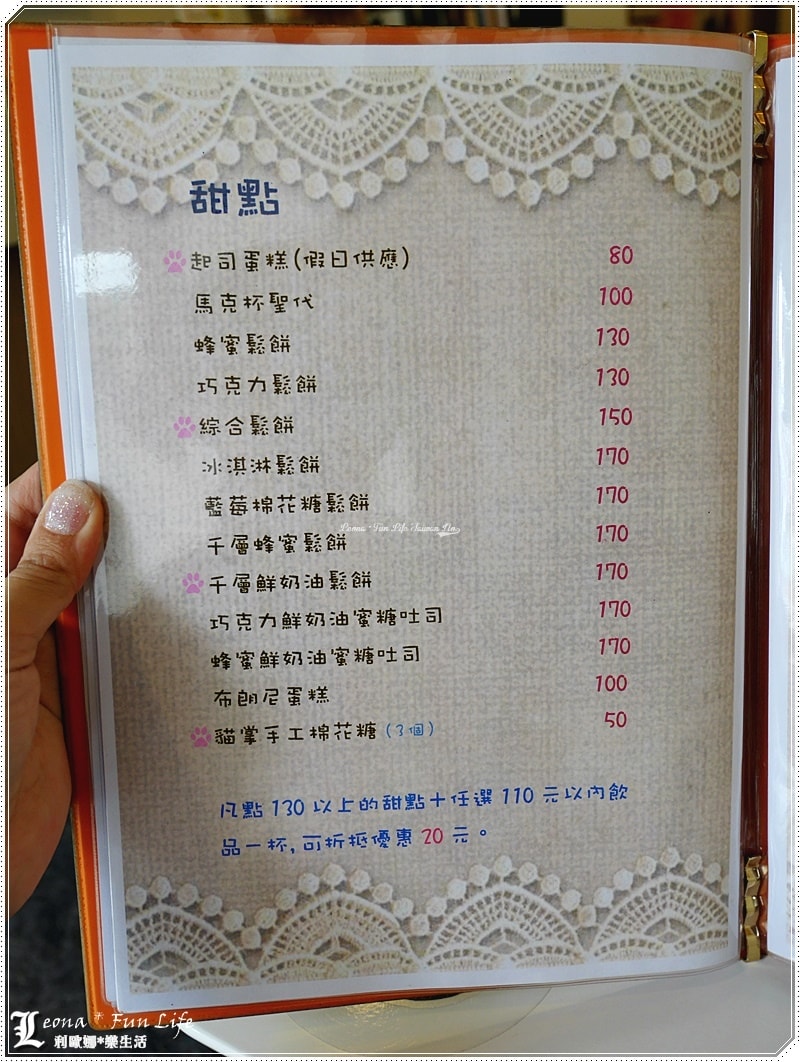 甜點
起司蛋糕(假日供應) 80
馬克杯聖代 100
蜂蜜鬆餅 130
巧克力鬆餅 130
綜合鬆餅 150
冰淇淋鬆餅 170
藍莓棉花糖鬆餅 170
千層蜂蜜鬆餅 170
千層鮮奶油鬆餅 170
巧克力鮮奶油蜜糖吐司 170
蜂蜜鮮奶油蜜糖吐司 170
布朗尼蛋糕 100
貓掌手工棉花糖(3個) 50
凡點 130 以上的甜點+任選 110 元以內飲
品一杯,可折抵優惠 20 元。
Leona * Fun Life
利歐娜*樂生活